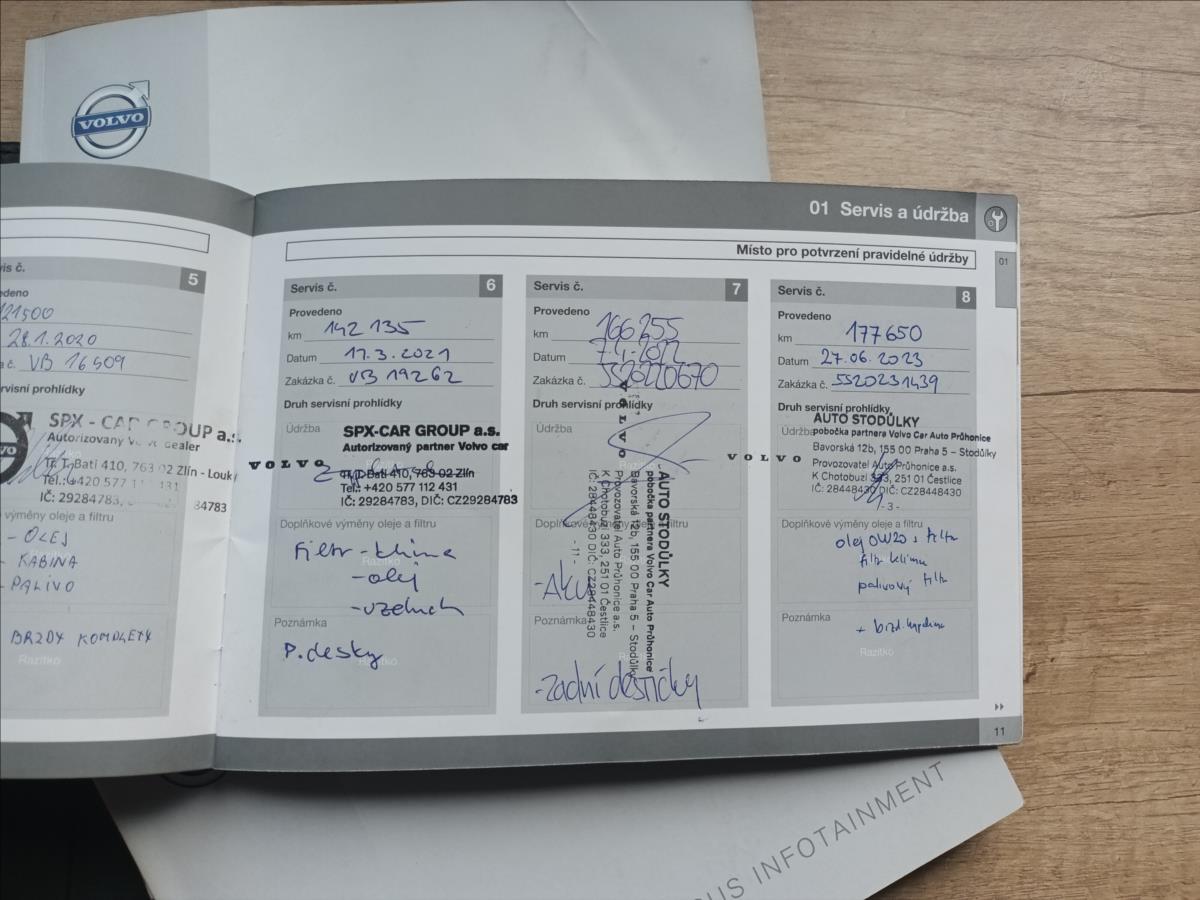 VOLVO
01 Servis a údržba
Místo pro potvrzení pravidelné údržby
01
5
121500
28.1.2020
VB 16509
SPX - CAR GROUP a.s.
Autorizovaný Volvo dealer
Tř. T. Bati 410, 763 02 Zlín - Louky
Tel.: +420 577 112 431
IČ: 29284783
84783
výměny oleje a filtru
- OLEJ
- KABINA
- PALIVO
BRZDY KOMPLETY
Razítko
Servis č. 6
Provedeno
km 142 135
Datum 17.3.2021
Zakázka č. VB 19262
Druh servisní prohlídky
Údržba
VOLVO
SPX-CAR GROUP a.s.
Autorizovaný partner Volvo car
Tř. T. Bati 410, 763 02 Zlín
Tel.: +420 577 112 431
IČ: 29284783, DIČ: CZ29284783
Doplňkové výměny oleje a filtru
Filtr - klima
- olej
- vzduch
Razítko
Poznámka
P. desky
Razítko
Servis č. 7
Provedeno
km 166 255
Datum
Zakázka č. 5520220670
Druh servisní prohlídky
Údržba
VOLVO
AUTO STODŮLKY
pobočka partnera Volvo Car Auto Průhonice
Bavorská 12b, 155 00 Praha 5 – Stodůlky
Provozovatel Auto Průhonice a.s.
K Chotobuzi 333, 251 01 Čestlice
IČ: 28448430 DIČ: CZ28448430
- 11 -
Doplňkové výměny oleje a filtru
- Aku
Poznámka
- zadní destičky
Servis č. 8
Provedeno
km 177650
Datum 27.06.2023
Zakázka č. 5520231439
Druh servisní prohlídky
Údržba
VOLVO
AUTO STODŮLKY
pobočka partnera Volvo Car Auto Průhonice
Bavorská 12b, 155 00 Praha 5 – Stodůlky
Provozovatel Auto Průhonice a.s.
K Chotobuzi 333, 251 01 Čestlice
IČ: 28448430 DIČ: CZ28448430
- 3 -
Doplňkové výměny oleje a filtru
olej 0W20 + filtr
filtr klima
palivový filtr
Poznámka
+ brzd. kapalina
Razítko
11
INFOTAINMENT